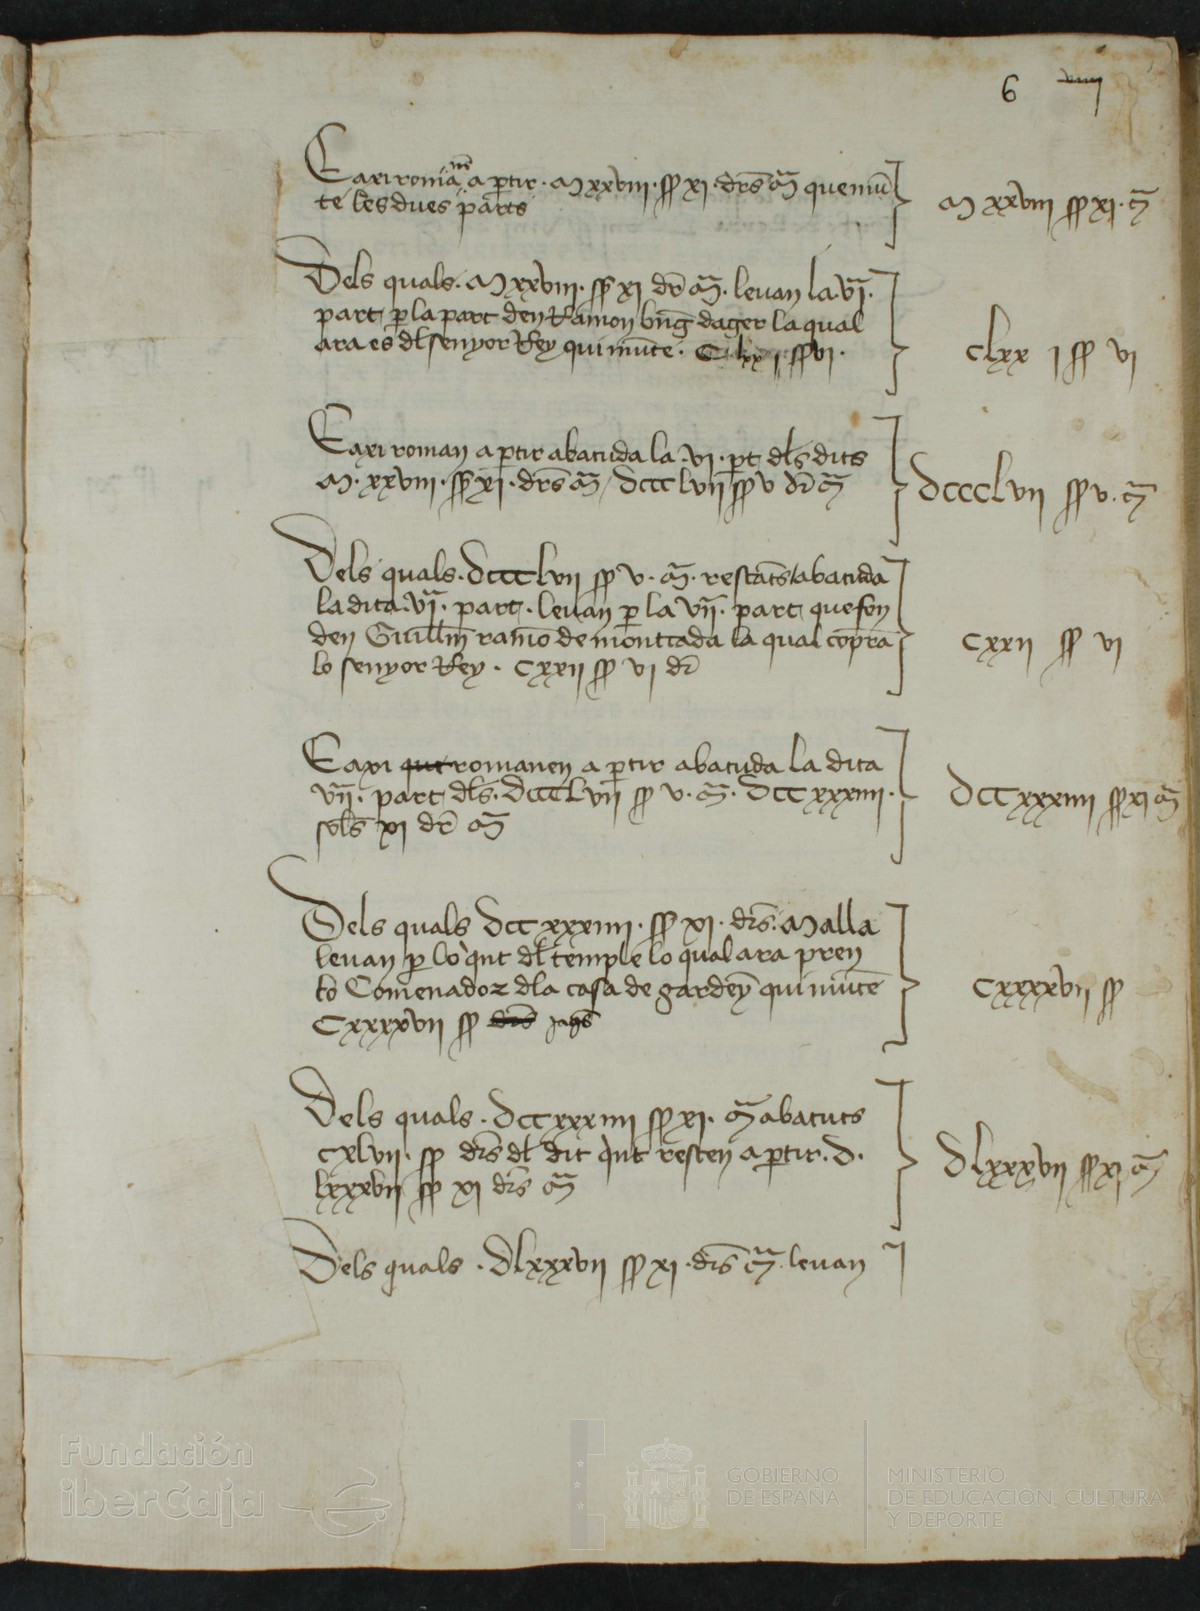 6 viiij
E axi romanē a ptir · M xxviii · ss xi · drs̄ m̄ que mū
te les dues parts
M xxviii ss xi · m̄
Dels quals · M xxviii · ss xi dr̄ m̄ · leuan la · vi̅ ·
part p la part den Ramon bn̄g dager la qual
ara es dl senyor Rey qui mūte · C lxx i ss vi ·
clxx i ss vi
E axi roman a ptir abatuda la · vi · pt dls dits
M · xxviii · ss xi · drs̄ m̄ / dccclvii ss v dr̄ m̄
dccclvii ss v · m̄
Dels quals · dccclvii ss v · m̄ · restāts abatuda
la dita · vi̅ · part · leuan p la vii̅ · part que fon
den Guillm̄ ramō de montcada la qual cōpra
lo senyor Rey · cxxii ss vi dr̄
cxxii ss vi
E axi romanen a ptir abatuda la dita
vii̅ · part dls · dccclvii ss v · m̄ · dccxxxiiii ·
sols̄ xi dr̄ m̄
dccxxxiiii ss xi m̄
Dels quals dccxxxiiii · ss xi · drs̄ · Malla
leuan p lo qͥnt dl temple lo qual ara pren
lo Comenador dla casa de gardeny qui mūte
Cxxxxvii ss drs̄ jaqs̄
cxxxxvii ss
Dels quals · dccxxxiiii ss xi · m̄ abatuts
cxlvii · ss drs̄ dl dit qͥnt resten a ptir · d ·
lxxxvii ss xi drs̄ m̄
dlxxxvii ss xi m̄
Dels quals · dlxxxvii ss xi · drs̄ m̄ · leuan
Fundación
iberCaja
GOBIERNO
DE ESPAÑA
MINISTERIO
DE EDUCACIÓN, CULTURA
Y DEPORTE